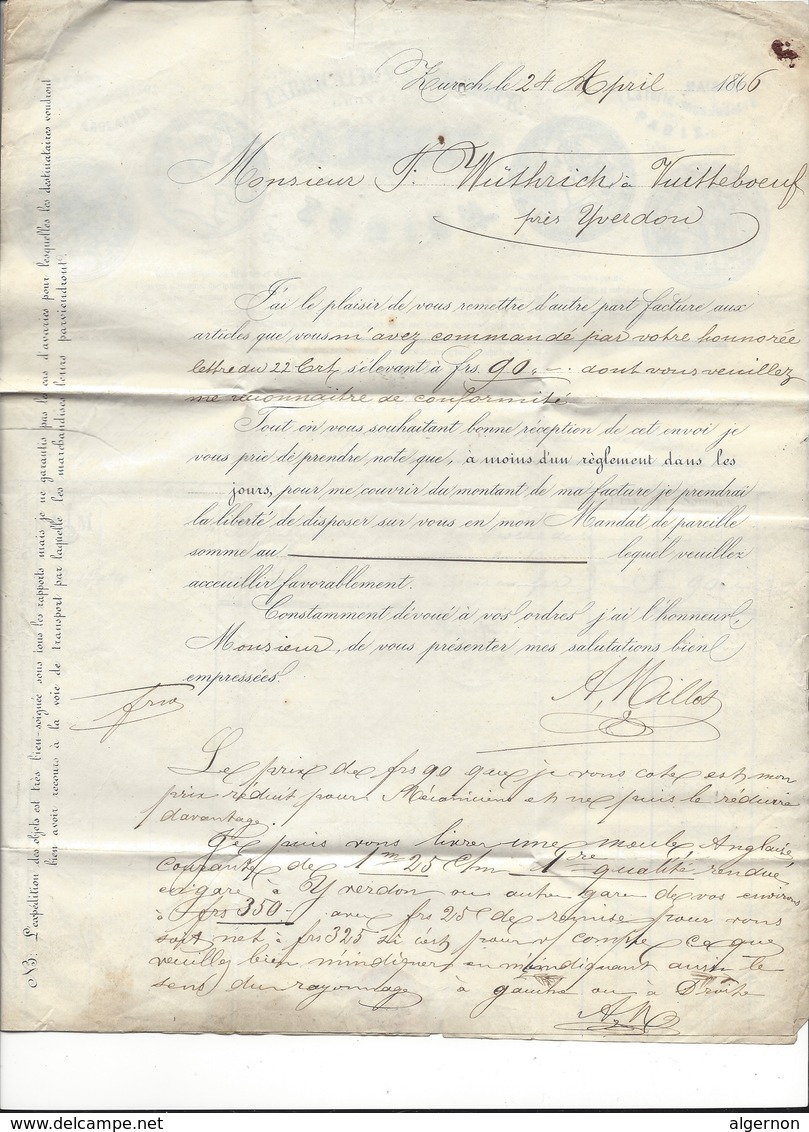 Zurich, le 24 April 1866
Monsieur F. Wüthrich à Vuitteboeuf
près Yverdon
J'ai le plaisir de vous remettre d'autre part facture aux
articles que vous m'avez commandé par votre honnorée
lettre du 22 Crt, s'élevant à frs. 90,- dont vous veuillez
me reconnaitre de conformité
Tout en vous souhaitant bonne réception de cet envoi je
vous prie de prendre note que, à moins d'un règlement dans les
jours, pour me couvrir du montant de ma facture je prendrai
la liberté de disposer sur vous en mon Mandat de pareille
somme au lequel veuillez
accueillir favorablement.
Constamment dévoué à vos ordres j'ai l'honneur,
Monsieur, de vous présenter mes salutations bien
empressées.
A. Millot
Le prix de frs 90 que je vous cote est mon
prix réduit pour Mécanicien et ne puis le réduire
davantage.
Je puis vous livrer une meule Anglaise
courante de 1m 25 c/m 1re qualité rendue
en gare à Yverdon ou autre gare de vos environs
à frs 350.- avec frs 25 de remise pour vous
soit net à frs 325 si c'est pour v/ compte ce que
veuillez bien m'indiquer en m'indiquant aussi le
sens du rayonnage à gauche ou à Droite
A. M
NB: L'expédition des objets est très bien-soignée sous tous les rapports mais je ne garantis pas les cas d'avaries pour lesquelles les destinataires voudront
bien avoir recours à la voie de transport par laquelle les marchandises leurs parviendront.
algernon